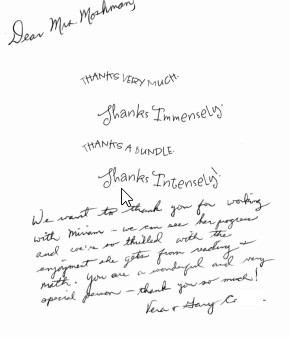 Dear Mrs. Moshman,
THANKS VERY MUCH.
Thanks Immensely.
THANKS A BUNDLE.
Thanks Intensely.
We want to thank you for working
with Miriam - we can see her progress
and we're so thrilled with the
enjoyment she gets from reading +
math. You are a wonderful and very
special person - thank you so much!
Vera + Gary C